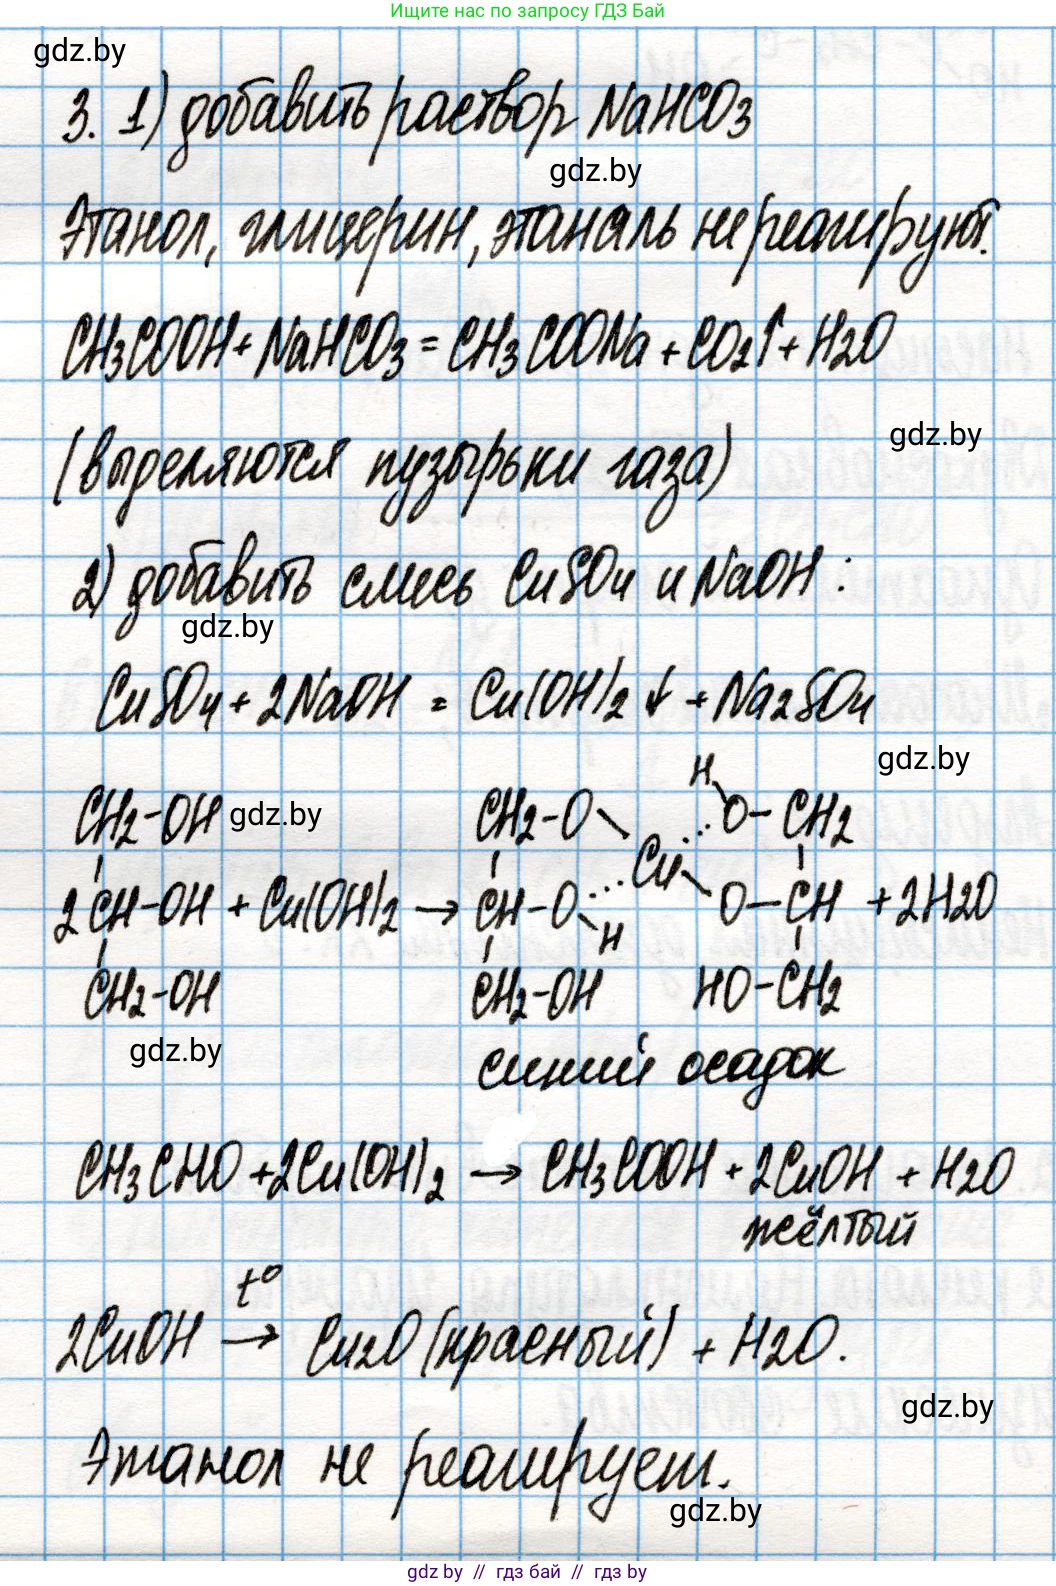 Ищите нас по запросу ГДЗ Бай
gdz.by
3. 1) добавить раствор NaHCO3
gdz.by
Этанол, глицерин, этаналь не реагируют.
CH3COOH + NaHCO3 = CH3COONa + CO2↑ + H2O
gdz.by
(выделяются пузырьки газа)
2) добавить смесь CuSO4 и NaOH:
gdz.by
CuSO4 + 2NaOH = Cu(OH)2↓ + Na2SO4
gdz.by
H
CH2-OH gdz.by CH2-O O-CH2
Cu
2CH-OH + Cu(OH)2 → CH-O O-CH + 2H2O
H
CH2-OH CH2-OH HO-CH2
gdz.by
синий осадок
CH3CHO + 2Cu(OH)2 → CH3COOH + 2CuOH + H2O
жёлтый
t°
2CuOH → Cu2O (красный) + H2O.
gdz.by
Этанол не реагирует.
gdz.by
gdz.by // гдз бай // gdz.by